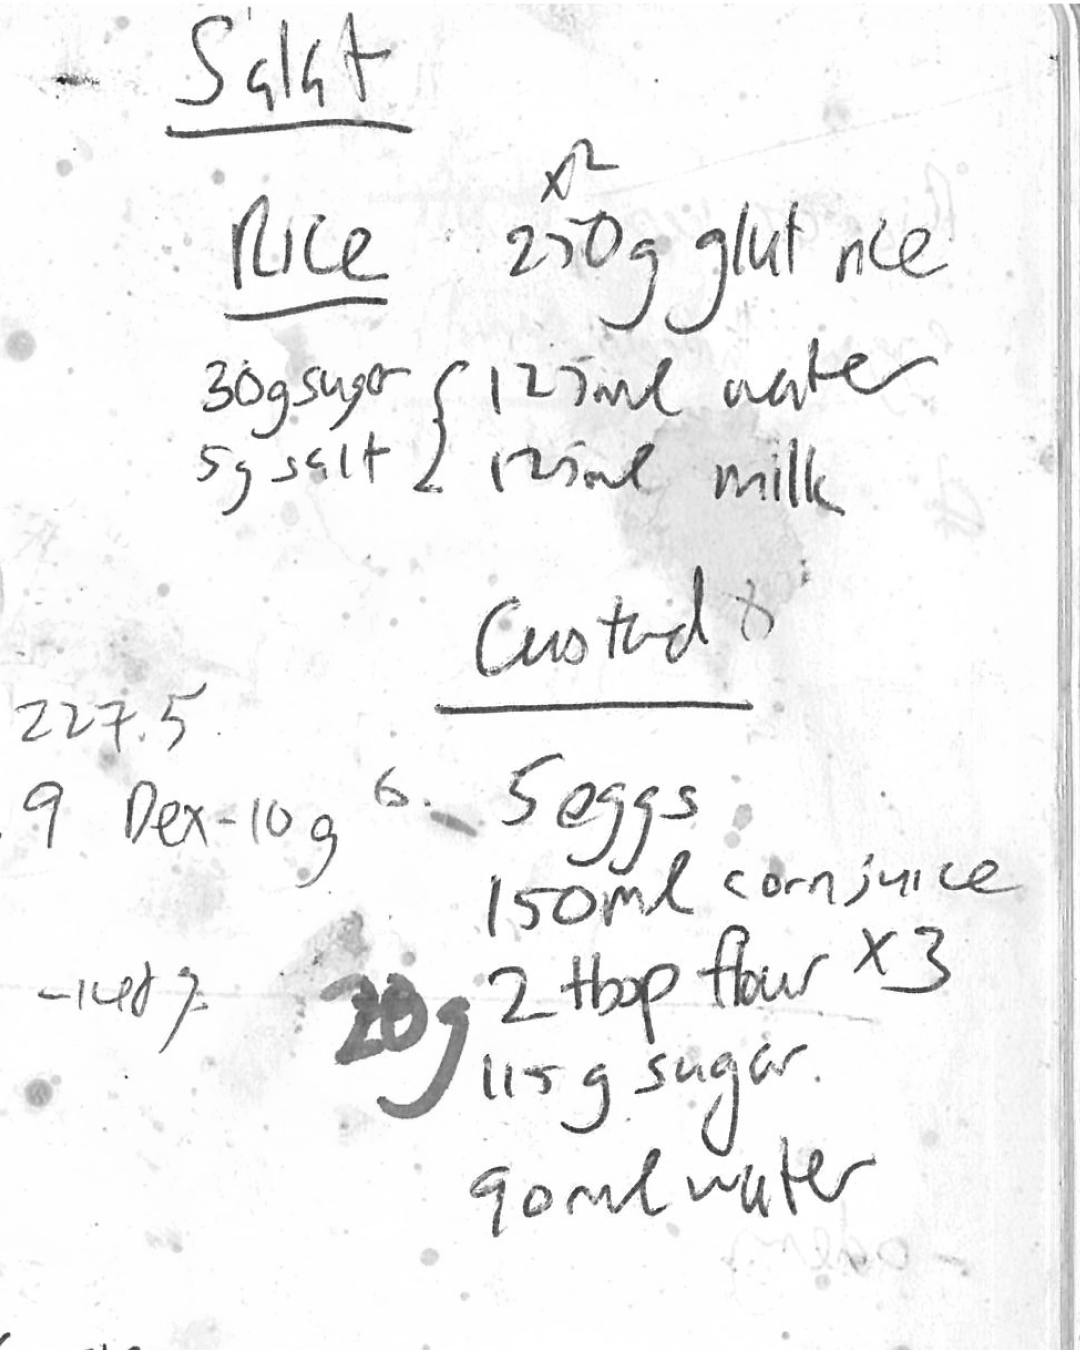 Salat
x2
Rice 250g glut rice
30g sugar { 125ml water
5g salt { 125ml milk
Custard
227.5
9 Dex-10g 6. 5 eggs
150ml corn juice
20g 2 tbsp flour x3
115g sugar.
90ml water